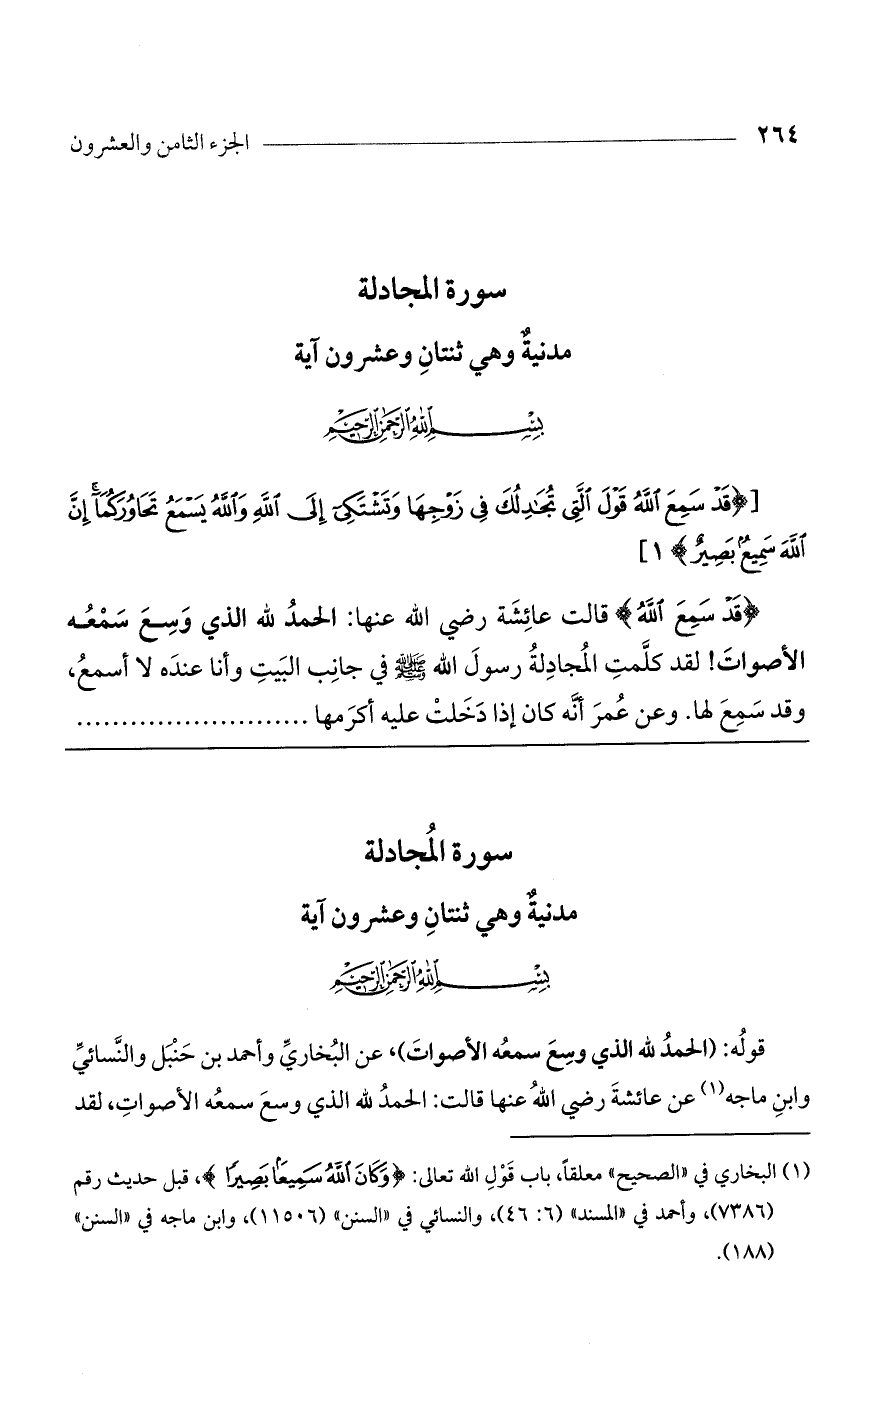 ٢٦٤ الجزء الثامن والعشرون
سورة المجادلة
مدنيةٌ وهي ثنتانِ وعشرون آية
بِسْمِ اللَّهِ الرَّحْمَٰنِ الرَّحِيمِ
[﴿قَدْ سَمِعَ ٱللَّهُ قَوْلَ ٱلَّتِى تُجَٰدِلُكَ فِى زَوْجِهَا وَتَشْتَكِىٓ إِلَى ٱللَّهِ وَٱللَّهُ يَسْمَعُ تَحَاوُرَكُمَآ ۚ إِنَّ
ٱللَّهَ سَمِيعٌۢ بَصِيرٌ﴾ ١]
﴿قَدْ سَمِعَ ٱللَّهُ﴾ قالت عائشَة رضي الله عنها: الحمدُ لله الذي وَسِعَ سَمْعُه
الأصواتَ! لقد كلَّمتِ المُجادِلةُ رسولَ الله ﷺ في جانِب البَيتِ وأنا عندَه لا أسمعُ،
وقد سَمِعَ لها. وعن عُمرَ أنَّه كان إذا دَخَلتْ عليه أكرَمها ..........................
سورة المُجادلة
مدنيةٌ وهي ثنتانِ وعشرون آية
بِسْمِ اللَّهِ الرَّحْمَٰنِ الرَّحِيمِ
قولُه: (الحمدُ لله الذي وسِعَ سمعُه الأصواتَ)، عن البُخاريِّ وأحمد بن حَنْبَل والنَّسائيِّ
وابنِ ماجه(١) عن عائشةَ رضي اللهُ عنها قالت: الحمدُ لله الذي وسعَ سمعُه الأصواتِ، لقد
(١) البخاري في «الصحيح» معلقاً، باب قَوْلِ الله تعالى: ﴿وَكَانَ ٱللَّهُ سَمِيعًۢا بَصِيرًا﴾، قبل حديث رقم
(٧٣٨٦)، وأحمد في «المسند» (٦: ٤٦)، والنسائي في «السنن» (١١٥٠٦)، وابن ماجه في «السنن»
(١٨٨).